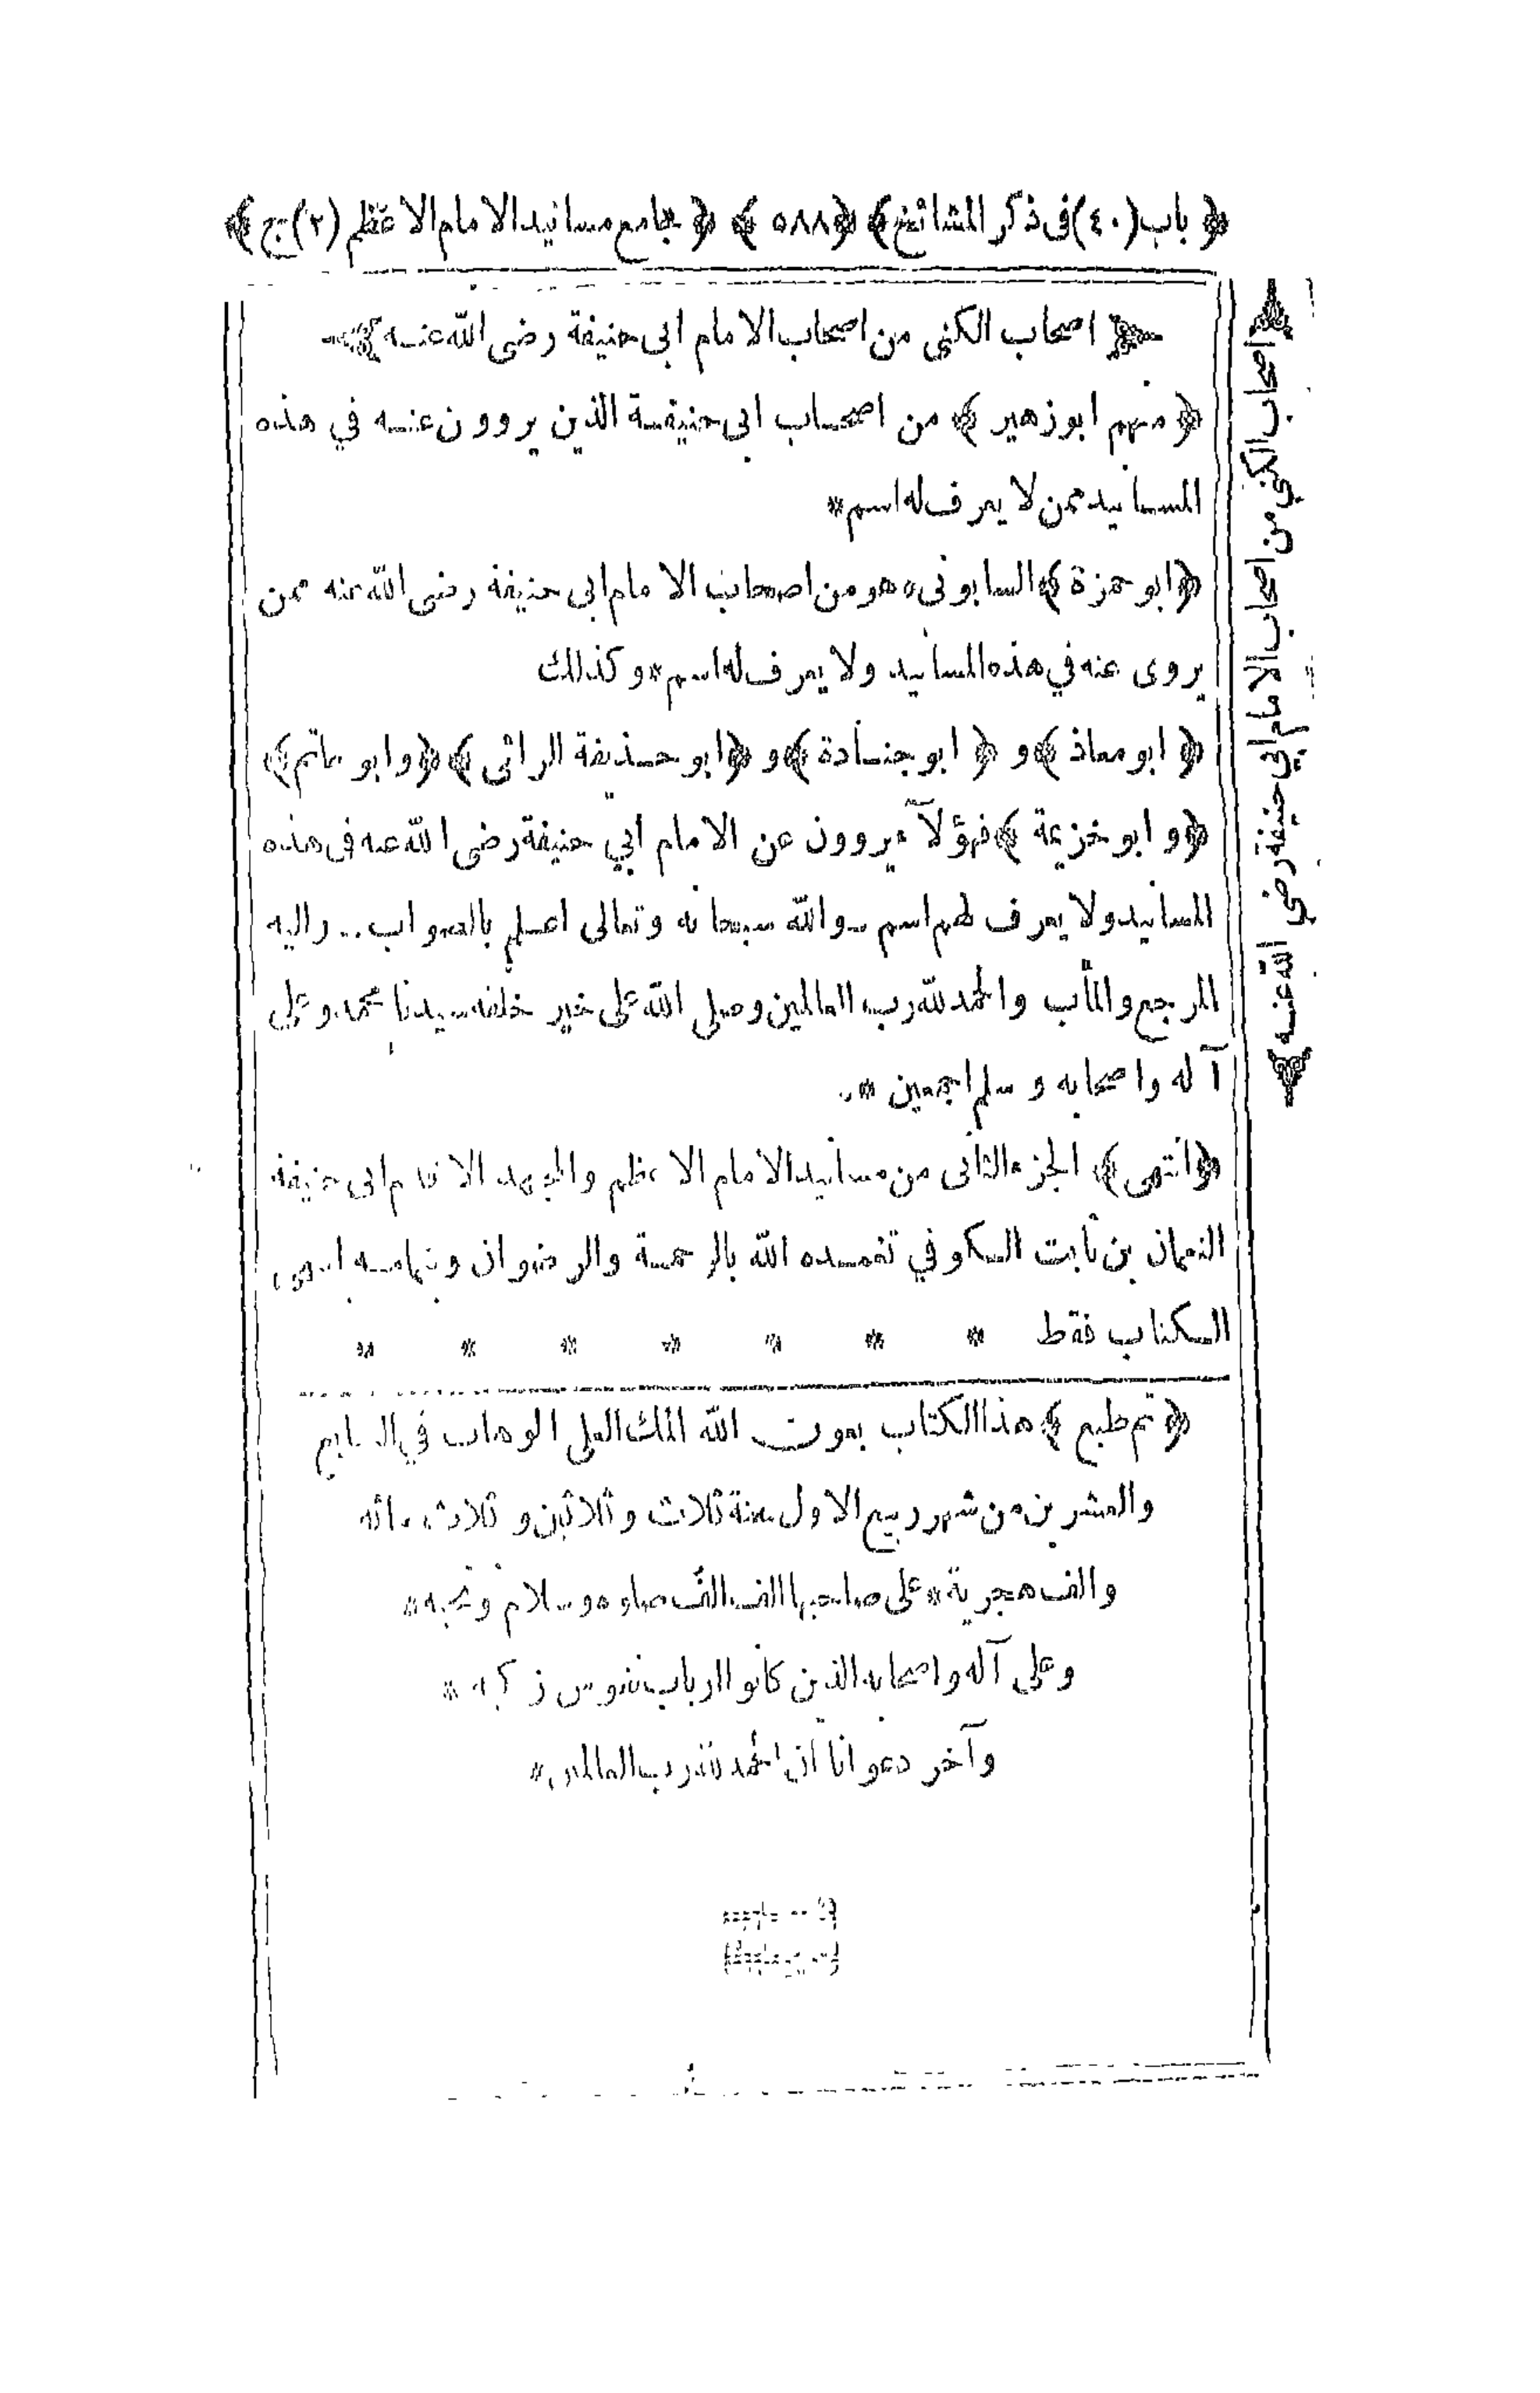 ﴿ باب (٤٠) فى ذكر المشائخ ﴾ ﴿ ٥٨٨ ﴾ ﴿ جامع مسانيد الامام الاعظم (٢) ج ﴾
اصحاب الكنى من اصحاب الامام ابى حنيفة رضى الله عنه
﴿ منهم ابو زهير ﴾ من اصحاب ابى حنيفة الذين يروون عنه في هذه
المسانيد ممن لا يعرف له اسم *
﴿ ابو حمزة ﴾ السابونى * هو من اصحاب الامام ابى حنيفة رضى الله عنه ممن
يروى عنه في هذه المسانيد ولا يعرف له اسم * وكذلك
﴿ ابو معاذ ﴾ و ﴿ ابو جنادة ﴾ و ﴿ ابو حذيفة الرائى ﴾ ﴿ وابو حاتم ﴾
﴿ و ابو خزيمة ﴾ فهؤلآء يروون عن الامام ابي حنيفة رضى الله عنه فى هذه
المسانيد ولا يعرف لهم اسم والله سبحانه وتعالى اعلم بالصواب واليه
المرجع والمأب والحمد لله رب العالمين وصلى الله على خير خلقه سيدنا محمد وعلى
آله واصحابه وسلم اجمعين *
﴿ انتهى ﴾ الجزء الثانى من مسانيد الامام الاعظم والمجتهد الاقدم ابى حنيفة
النعمان بن ثابت الكوفي تغمده الله بالرحمة والرضوان وبتمامه انتهى
الكتاب فقط * * * * * * *
﴿ تم طبع ﴾ هذا الكتاب بعون الله الملك العلى الوهاب في السابع
والعشرين من شهر ربيع الاول سنة ثلاث وثلاثين وثلاث مائه
والف هجرية * على صاحبها الف الف صلوة وسلام وتحيه *
وعلى آله واصحابه الذين كانوا ارباب نفوس زكيه *
وآخر دعوانا ان الحمد لله رب العالمين *
اصحاب الكني من اصحاب الامام ابي حنيفة رضي الله عنه